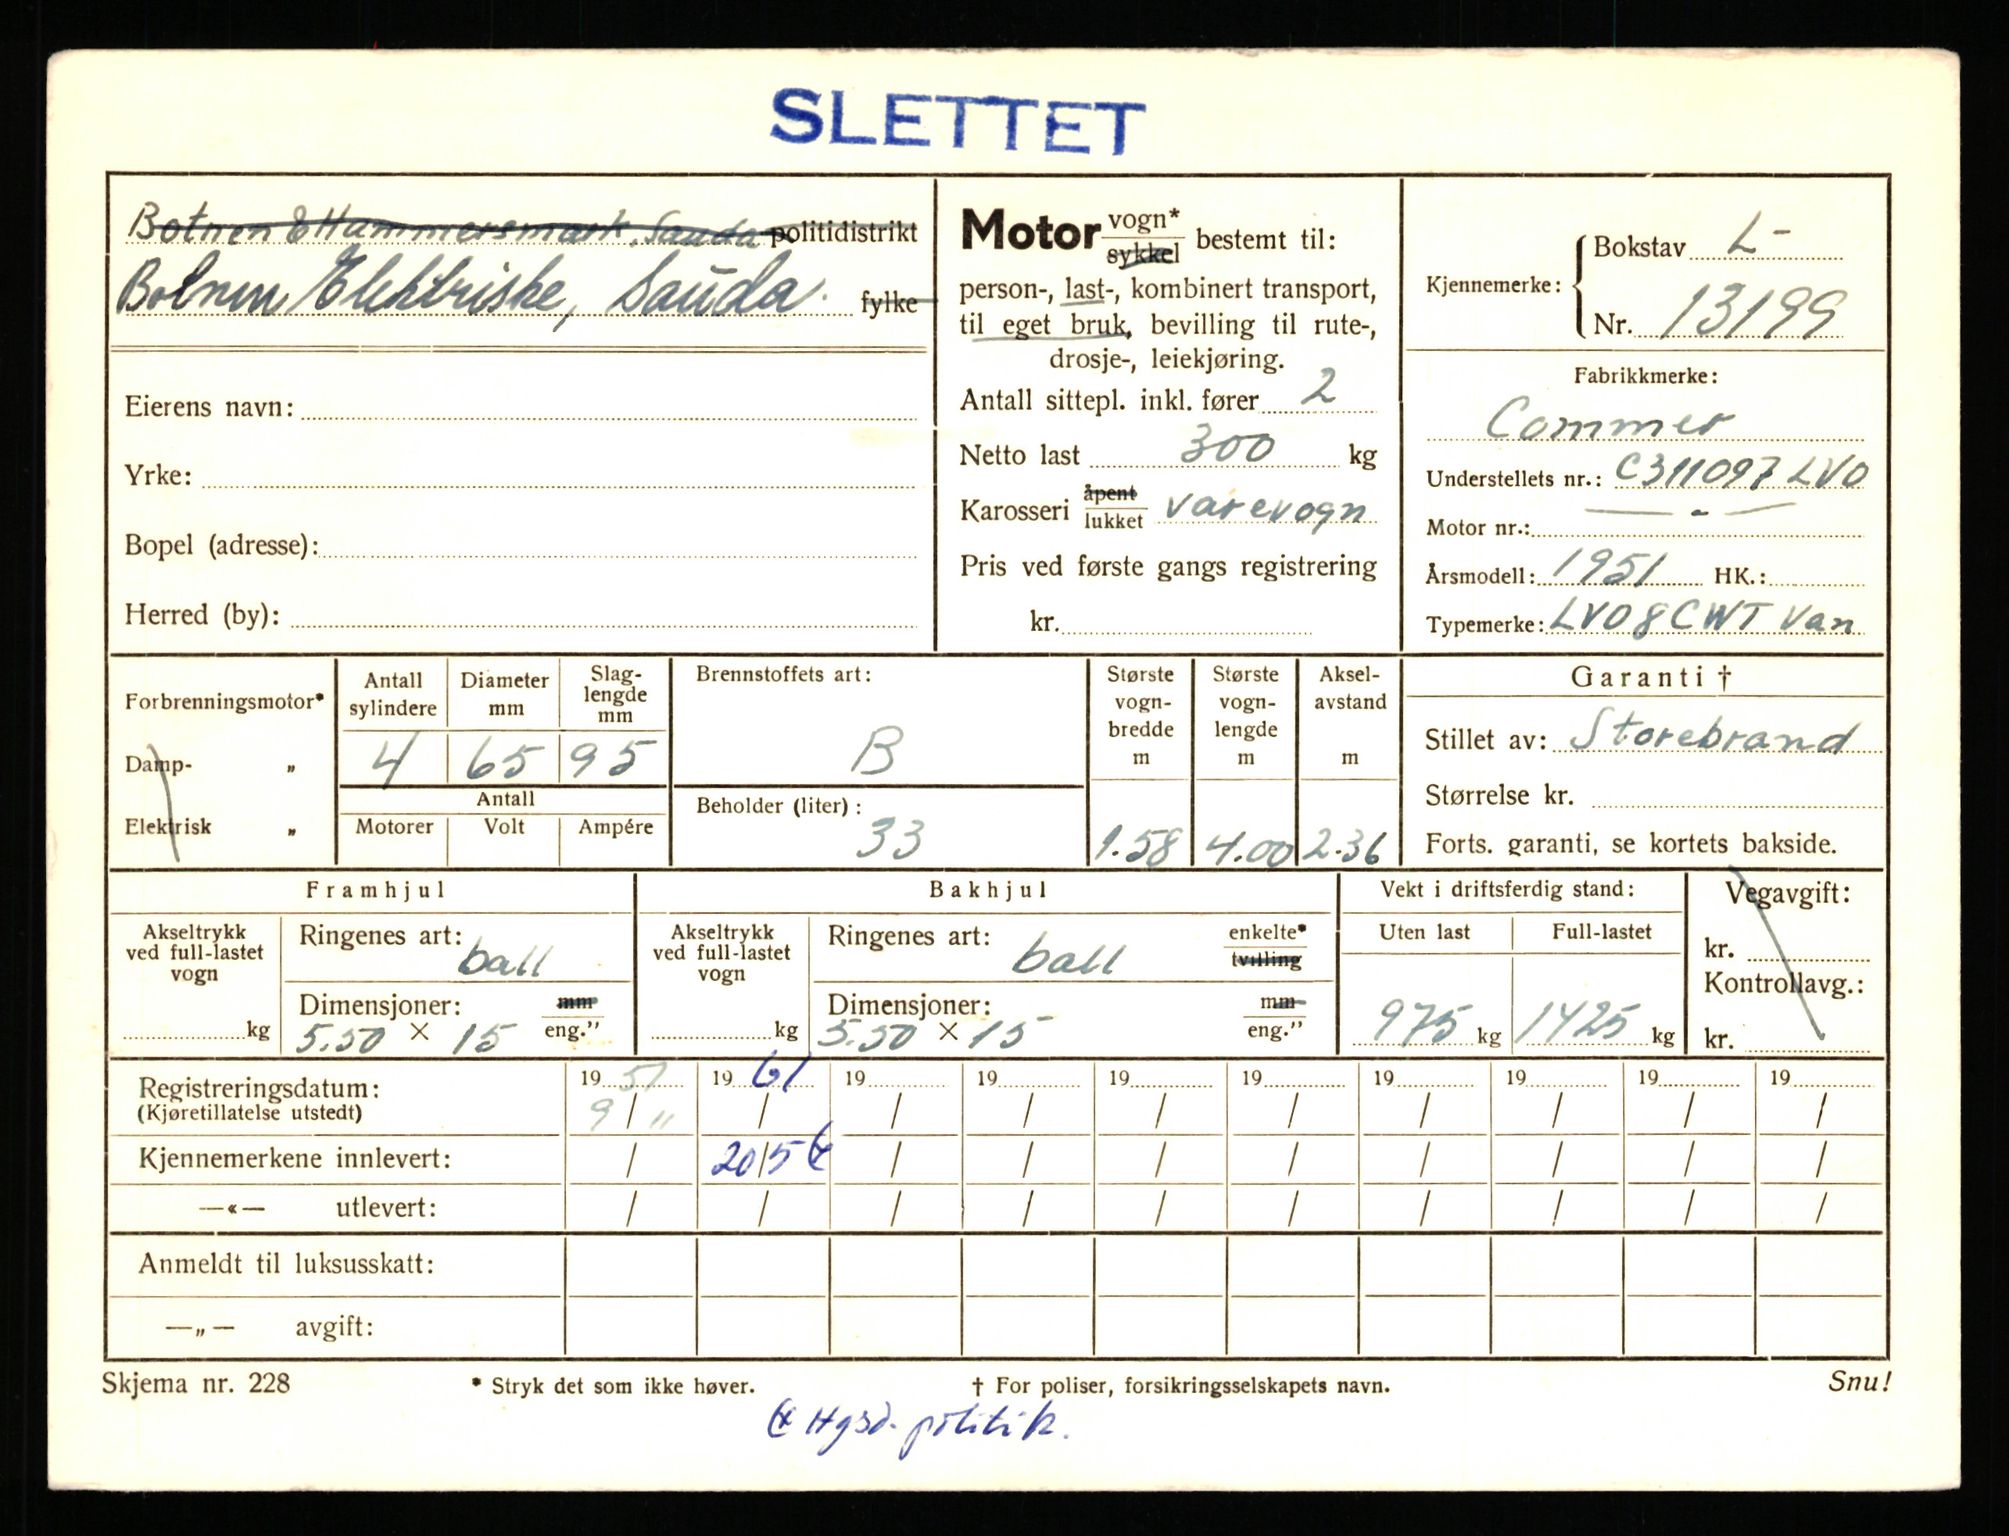 SLETTET
Botnen & Hammersmark, Sauda politidistrikt
Botnen Elektriske, Sauda. fylke
Eierens navn:
Yrke:
Bopel (adresse):
Herred (by):
Motor vogn* sykkel bestemt til:
person-, last-, kombinert transport,
til eget bruk, bevilling til rute-,
drosje-, leiekjøring.
Antall sittepl. inkl. fører 2
Netto last 300 kg
Karosseri åpent lukket varevogn
Pris ved første gangs registrering
kr.
Kjennemerke: Bokstav L-
Nr. 13199
Fabrikkmerke:
Commer
Understellets nr.: C311097 LVO
Motor nr.: — " —
Årsmodell: 1951 HK.:
Typemerke: LVO 8 CWT Van
Forbrenningsmotor*
Damp- „
Elektrisk „
Antall sylindere Diameter mm Slag-lengde mm
4 65 95
Antall
Motorer Volt Ampére
Brennstoffets art:
B
Beholder (liter):
33
Største vogn-bredde m Største vogn-lengde m Aksel-avstand m
1.58 4.00 2.36
Garanti †
Stillet av: Storebrand
Størrelse kr.
Forts. garanti, se kortets bakside.
Framhjul
Akseltrykk
ved full-lastet
vogn
kg
Ringenes art:
ball
Dimensjoner: mm
5.50 × 15 eng."
Bakhjul
Akseltrykk
ved full-lastet
vogn
kg
Ringenes art: enkelte*
ball tvilling
Dimensjoner: mm
5.50 × 15 eng."
Vekt i driftsferdig stand:
Uten last Full-lastet
975 kg 1425 kg
Vegavgift:
kr.
Kontrollavg.:
kr.
Registreringsdatum: 19 51 19 61 19 19 19 19 19 19 19 19
(Kjøretillatelse utstedt) 9 / 11 / / / / / / / / /
Kjennemerkene innlevert: / 20/5 / / / / / / / /
—«— utlevert: / / / / / / / / / /
Anmeldt til luksusskatt:
—„— avgift:
Skjema nr. 228 * Stryk det som ikke høver. † For poliser, forsikringsselskapets navn. Snu!
Hgsd. politik.